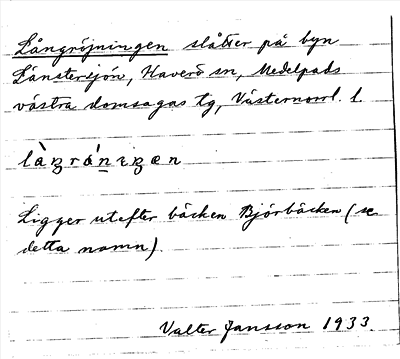 Långröjningen slåtter på byn
Länstersjön, Haverö sn, Medelpads
västra domsagas tg, Västernorrl. l.
Ligger utefter bäcken Björbäcken (se
detta namn).
Valter Jansson 1933.